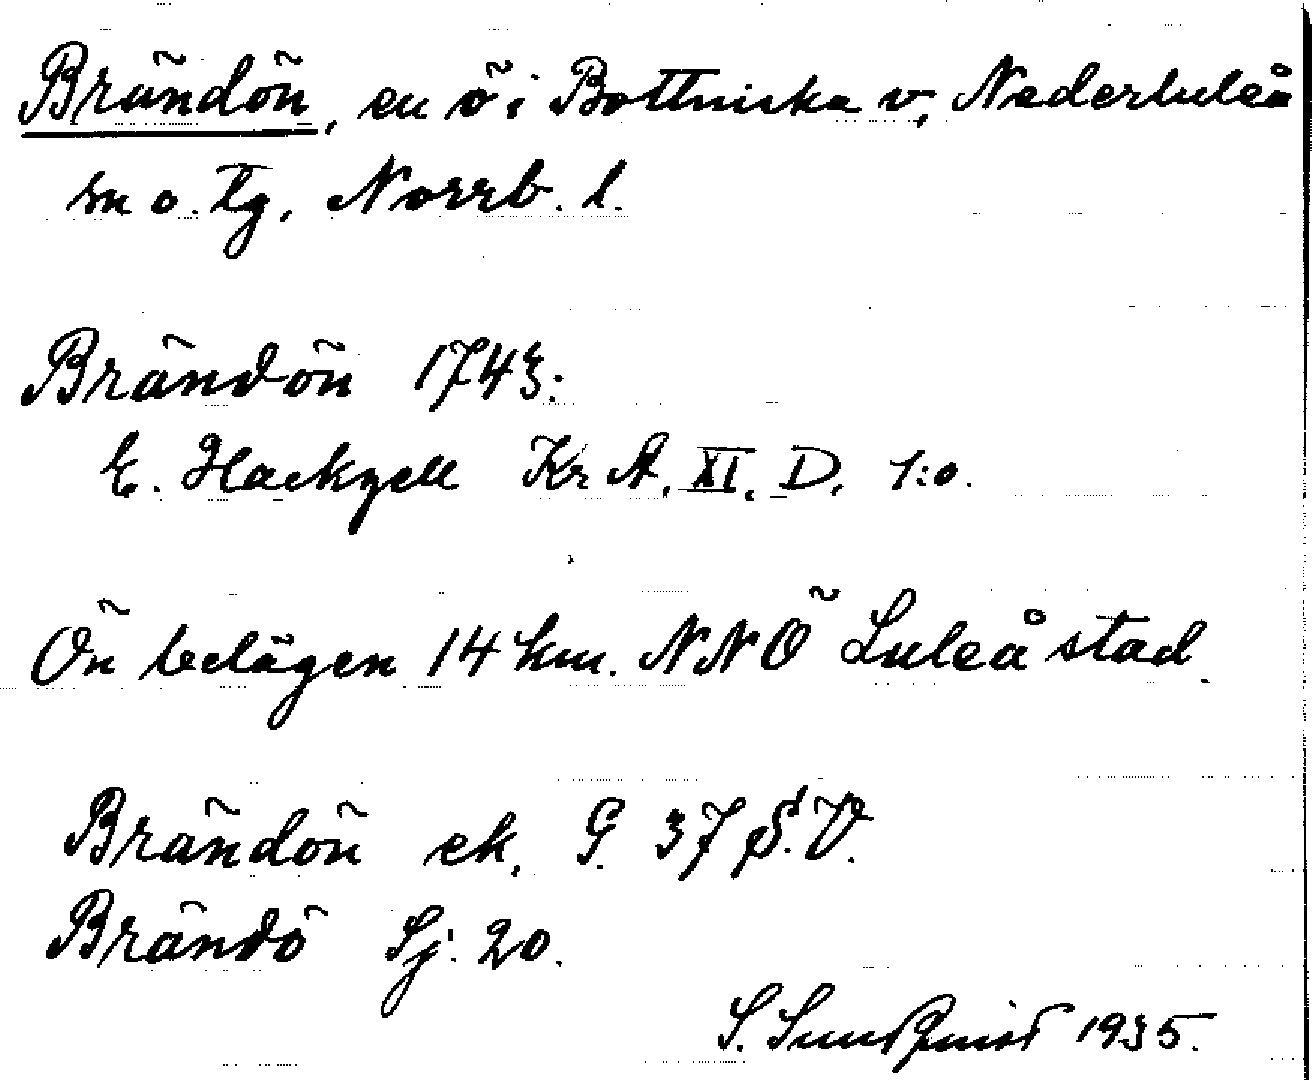 Brändön, en ö i Bottniska v, Nederluleå
sn o. tg, Norrb. l.
Brändön 1743:
E. Hackzell Kr A, XI, D, 1:o.
Ön belägen 14 km. NNÖ Luleå stad.
Brändön ek, G. 37 S.V.
Brändö Sj. 20.
S. Sundquist 1935.